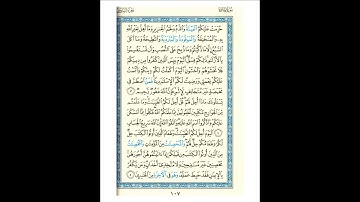 حُرِّمَتْ عَلَيْكُمُ الْمَيْتَةُ وَالدَّمُ وَلَحْمُ الْخِنزِيرِ وَمَا أُهِلَّ لِغَيْرِ اللَّهِ
بِهِ وَالْمُنْخَنِقَةُ وَالْمَوْقُوذَةُ وَالْمُتَرَدِّيَةُ وَالنَّطِيحَةُ وَمَا أَكَلَ
السَّبُعُ إِلَّا مَا ذَكَّيْتُمْ وَمَا ذُبِحَ عَلَى النُّصُبِ وَأَن تَسْتَقْسِمُوا
بِالْأَزْلَامِ ذَلِكُمْ فِسْقٌ الْيَوْمَ يَئِسَ الَّذِينَ كَفَرُوا مِن دِينِكُمْ
فَلَا تَخْشَوْهُمْ وَاخْشَوْنِ الْيَوْمَ أَكْمَلْتُ لَكُمْ دِينَكُمْ وَأَتْمَمْتُ
عَلَيْكُمْ نِعْمَتِي وَرَضِيتُ لَكُمُ الْإِسْلَامَ دِينًا فَمَنِ اضْطُرَّ فِي
مَخْمَصَةٍ غَيْرَ مُتَجَانِفٍ لِّإِثْمٍ فَإِنَّ اللَّهَ غَفُورٌ رَّحِيمٌ ٣
يَسْأَلُونَكَ مَاذَا أُحِلَّ لَهُمْ قُلْ أُحِلَّ لَكُمُ الطَّيِّبَاتُ وَمَا عَلَّمْتُم
مِّنَ الْجَوَارِحِ مُكَلِّبِينَ تُعَلِّمُونَهُنَّ مِمَّا عَلَّمَكُمُ اللَّهُ فَكُلُوا مِمَّا أَمْسَكْنَ
عَلَيْكُمْ وَاذْكُرُوا اسْمَ اللَّهِ عَلَيْهِ وَاتَّقُوا اللَّهَ إِنَّ اللَّهَ سَرِيعُ الْحِسَابِ
٤ الْيَوْمَ أُحِلَّ لَكُمُ الطَّيِّبَاتُ وَطَعَامُ الَّذِينَ أُوتُوا الْكِتَابَ حِلٌّ
لَّكُمْ وَطَعَامُكُمْ حِلٌّ لَّهُمْ وَالْمُحْصَنَاتُ مِنَ الْمُؤْمِنَاتِ وَالْمُحْصَنَاتُ
مِنَ الَّذِينَ أُوتُوا الْكِتَابَ مِن قَبْلِكُمْ إِذَا آتَيْتُمُوهُنَّ أُجُورَهُنَّ
مُحْصِنِينَ غَيْرَ مُسَافِحِينَ وَلَا مُتَّخِذِي أَخْدَانٍ وَمَن يَكْفُرْ
بِالْإِيمَانِ فَقَدْ حَبِطَ عَمَلُهُ وَهُوَ فِي الْآخِرَةِ مِنَ الْخَاسِرِينَ ٥
١٠٧